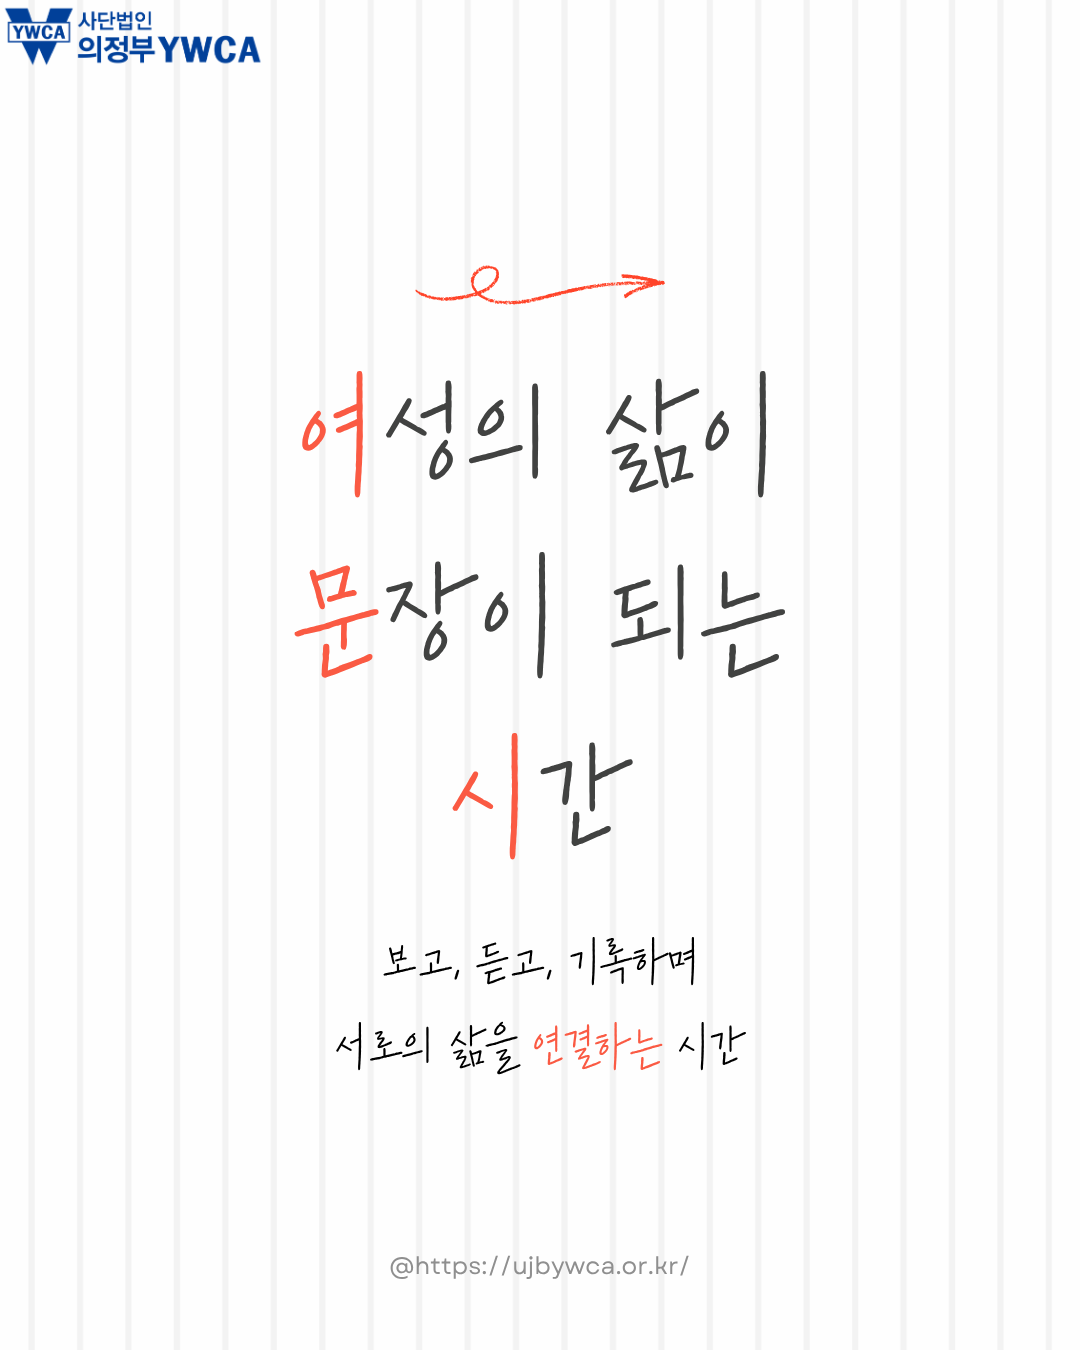 YWCA
사단법인
의정부 YWCA
여성의 삶이
문장이 되는
시간
보고, 듣고, 기록하며
서로의 삶을 연결하는 시간
@https://ujbywca.or.kr/